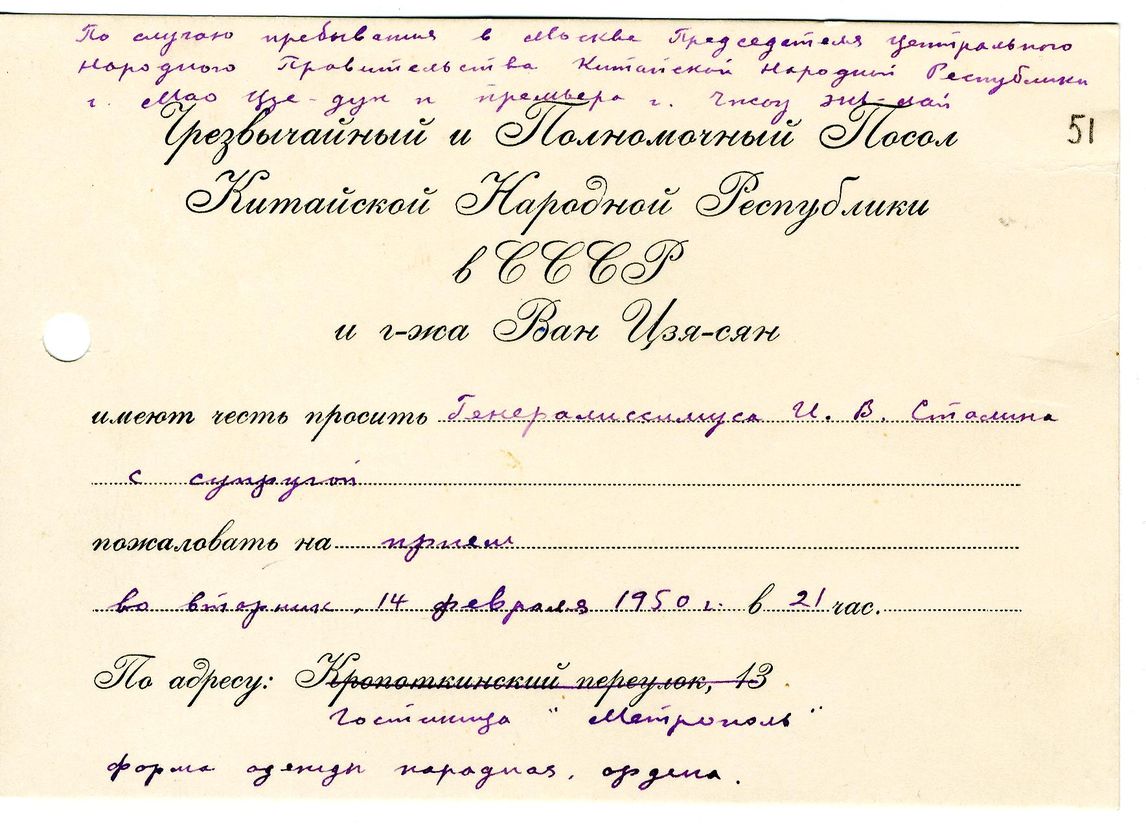 По случаю пребывания в Москве Председателя Центрального
Народного Правительства Китайской Народной Республики
г. Мао Цзе-дун и премьера г. Чжоу Энь-лай
51
Чрезвычайный и Полномочный Посол
Китайской Народной Республики
в СССР
и г-жа Ван Цзя-сян
имеют честь просить Генералиссимуса И. В. Сталина
с супругой
пожаловать на прием
во вторник, 14 февраля 1950 г. в 21 час.
По адресу: Кропоткинский переулок, 13
Гостиница "Метрополь"
форма одежды парадная, ордена.